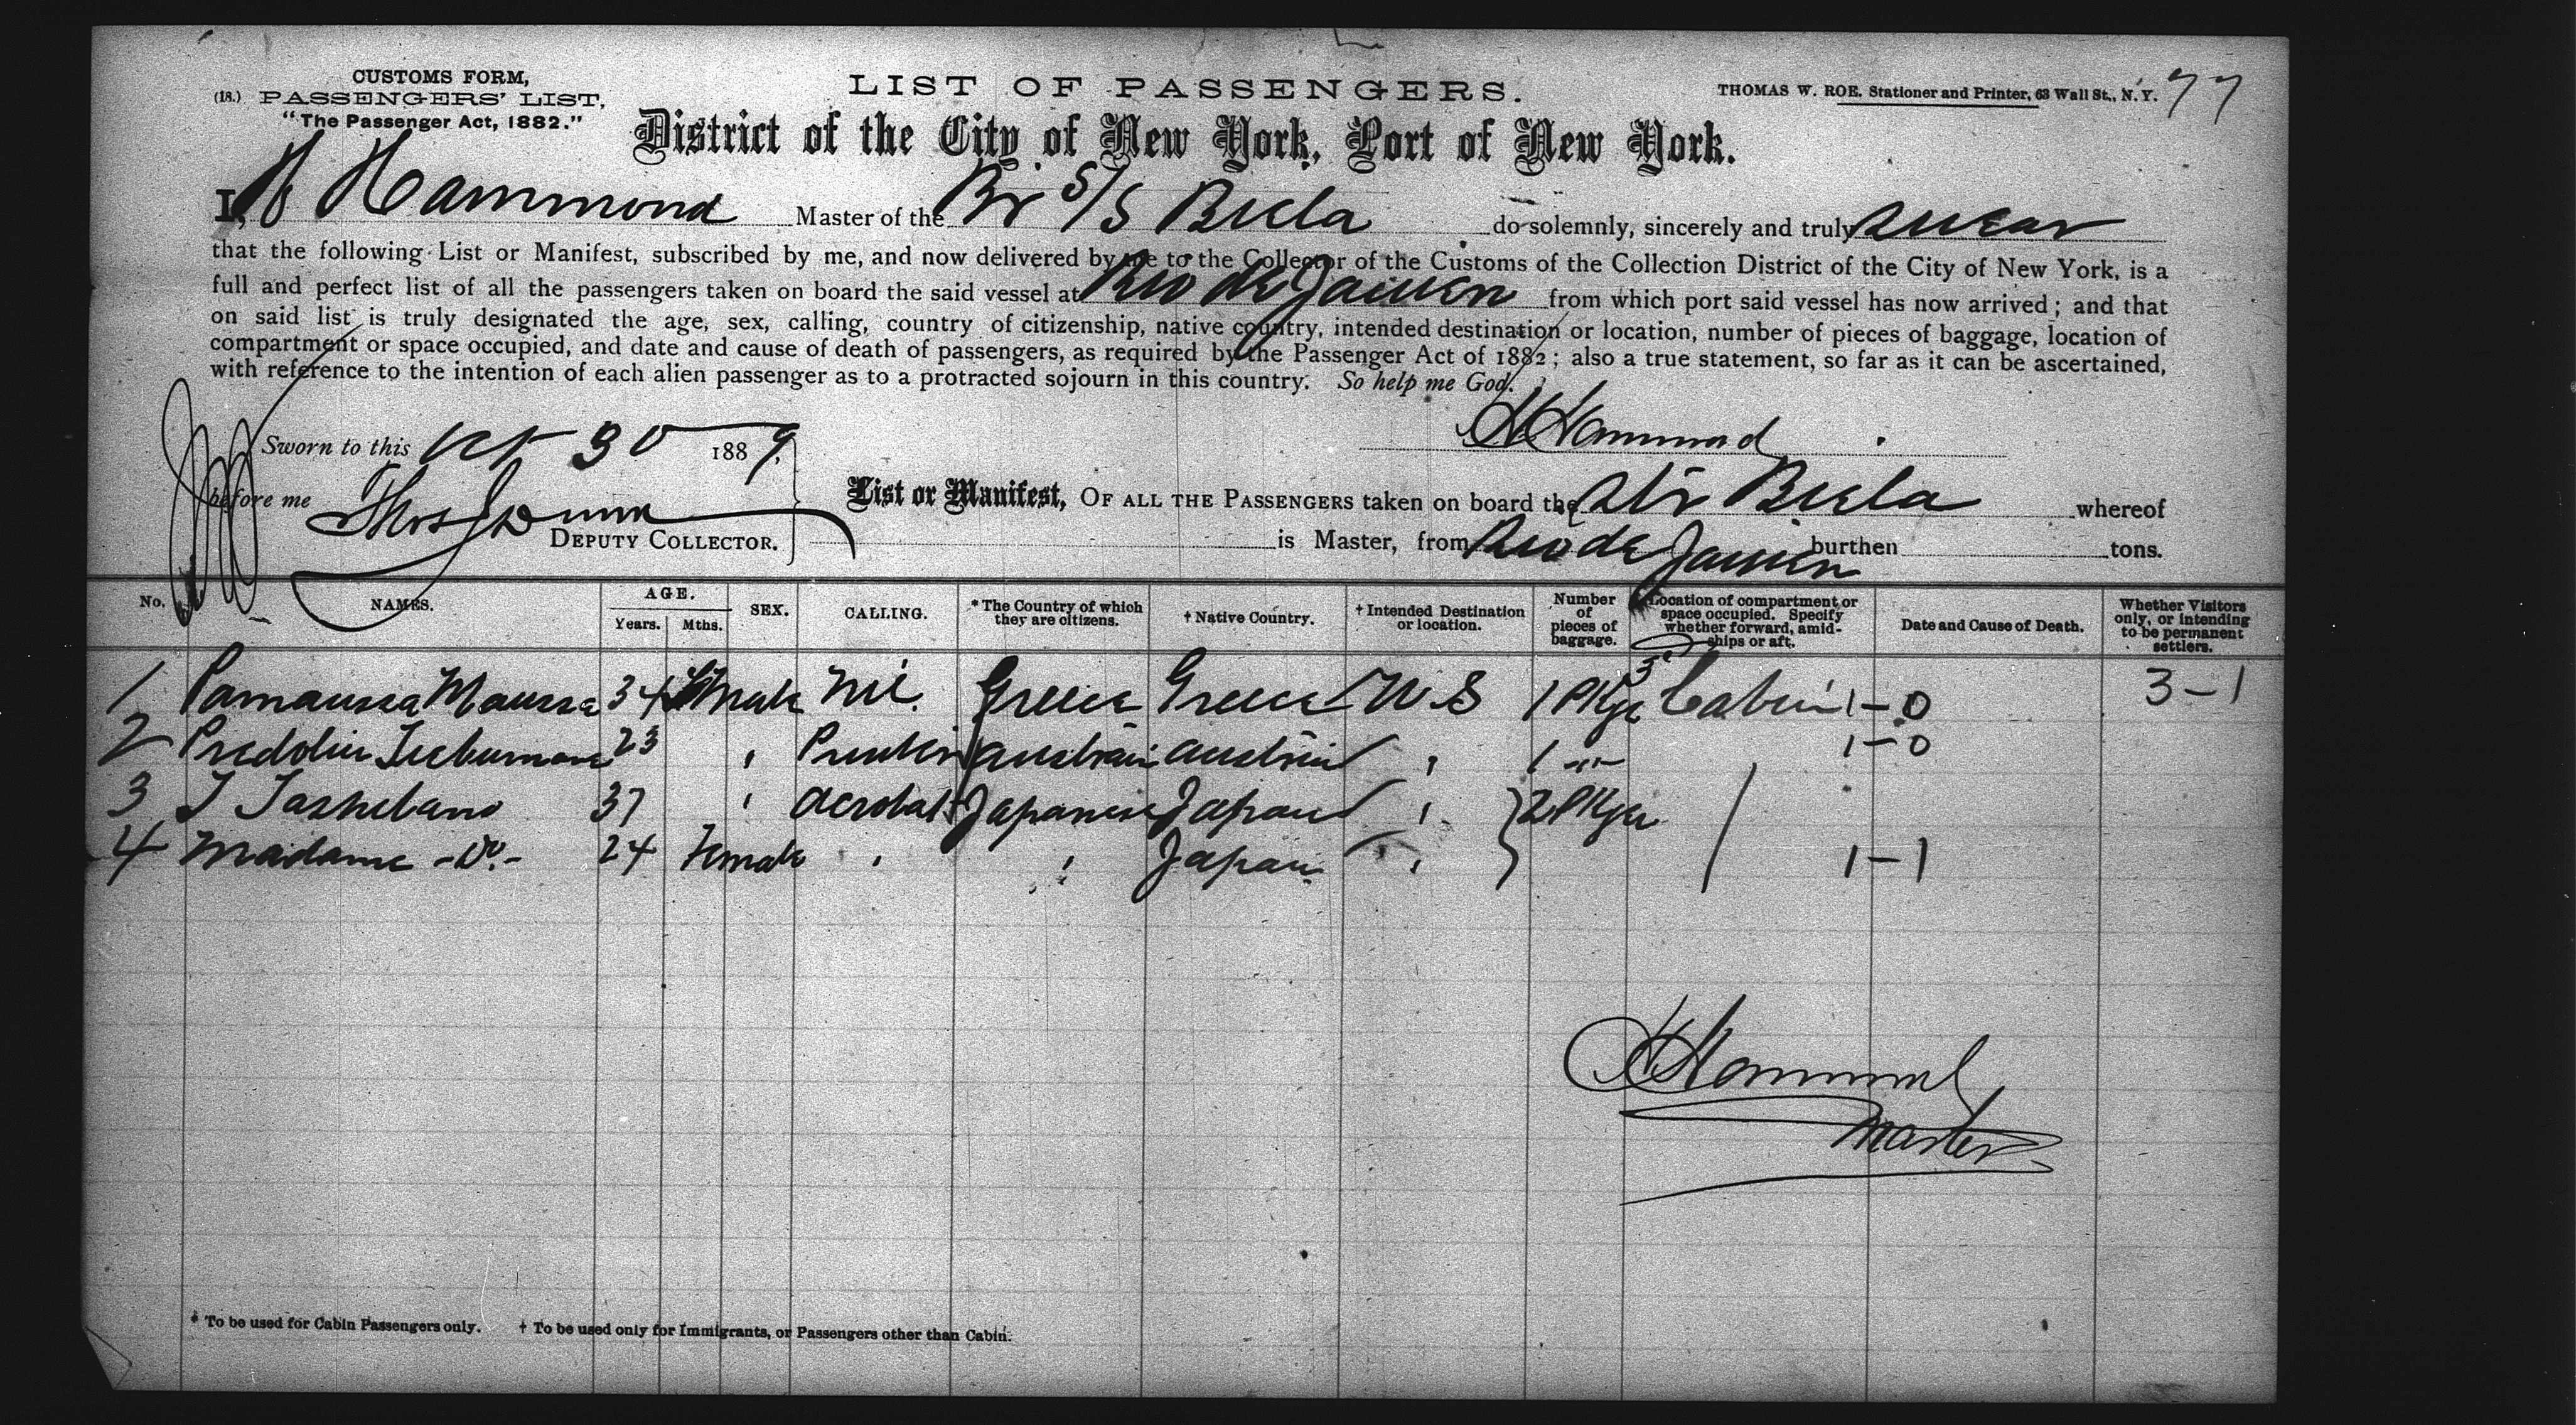 CUSTOMS FORM,
(18.) PASSENGERS' LIST,
"The Passenger Act, 1882."
LIST OF PASSENGERS.
THOMAS W. ROE, Stationer and Printer, 63 Wall St., N.Y. 77
District of the City of New York, Port of New York.
I, H Hammond Master of the Br S/S Biela do solemnly, sincerely and truly swear
that the following List or Manifest, subscribed by me, and now delivered by me to the Collector of the Customs of the Collection District of the City of New York, is a
full and perfect list of all the passengers taken on board the said vessel at Rio de Janeiro from which port said vessel has now arrived; and that
on said list is truly designated the age, sex, calling, country of citizenship, native country, intended destination or location, number of pieces of baggage, location of
compartment or space occupied, and date and cause of death of passengers, as required by the Passenger Act of 1882; also a true statement, so far as it can be ascertained,
with reference to the intention of each alien passenger as to a protracted sojourn in this country. So help me God.
H Hammond
Sworn to this Oct 30 1889,
before me Thos J Dunn
DEPUTY COLLECTOR.
List or Manifest, OF ALL THE PASSENGERS taken on board the Str Biela whereof
is Master, from Rio de Janeiro burthen tons.
No. NAMES. AGE. Years. Mths. SEX. CALLING. * The Country of which they are citizens. † Native Country. † Intended Destination or location. Number of pieces of baggage. Location of compartment or space occupied. Specify whether forward, amid-ships or aft. Date and Cause of Death. Whether Visitors only, or intending to be permanent settlers.
1 34 Male Nil. Greece Greece U.S 1 Pkge Cabin 1-0 3-1
2 23 " Austrian Austria " 1 " 1-0
3 37 " Acrobat Japanese Japan " 2 Pkges
4 Madame -Do.- 24 Female " " Japan " 1-1
H Hammond
Master
* To be used for Cabin Passengers only. † To be used only for Immigrants, or Passengers other than Cabin.